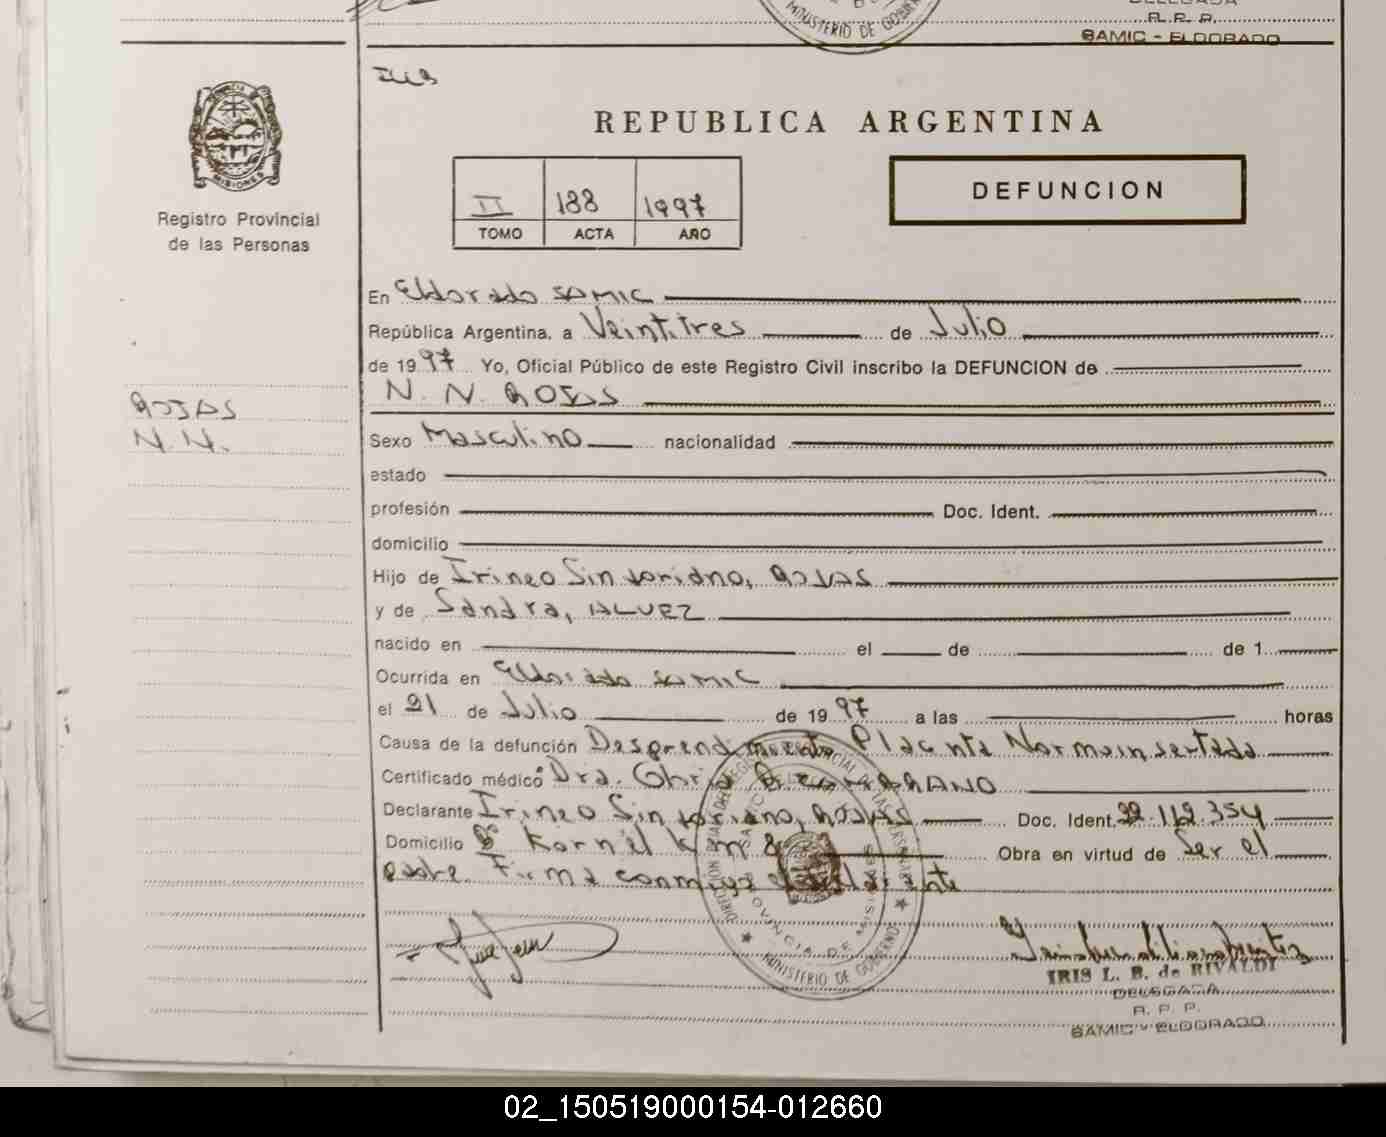 MINISTERIO DE GOBIERNO
DELEGADA
R. P. P.
SAMIC - ELDORADO
REPUBLICA ARGENTINA
PROVINCIA
MISIONES
II 188 1997
TOMO ACTA AÑO
DEFUNCION
Registro Provincial
de las Personas
En Eldorado SAMIC
República Argentina, a Veintitres de Julio
de 1997 Yo, Oficial Público de este Registro Civil inscribo la DEFUNCION de
N. N. ROJAS
ROJAS
N.N.
Sexo Masculino nacionalidad
estado
profesión Doc. Ident.
domicilio
Hijo de Irineo Sinforiano, ROJAS
y de Sandra, ALVEZ
nacido en el de de 1
Ocurrida en Eldorado SAMIC
el 21 de Julio de 1997 a las horas
Causa de la defunción Desprendimiento Placenta Normoinsertada
Certificado médico Dra.
Declarante Irineo Sinforiano, ROJAS Doc. Ident. 22.112.354
Domicilio Bº Kornel Km 8 Obra en virtud de Ser el
padre. Firma conmigo el declarante
PROVINCIA DE MISIONES
MINISTERIO DE GOBIERNO
IRIS L. B. de RIVALDI
DELEGADA
R. P. P.
SAMIC - ELDORADO
02_150519000154-012660